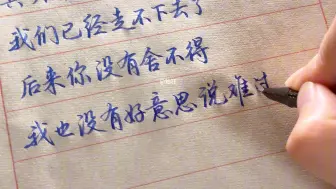 我们已经走不下去了
后来你没有舍不得
我也没有好意思说难过